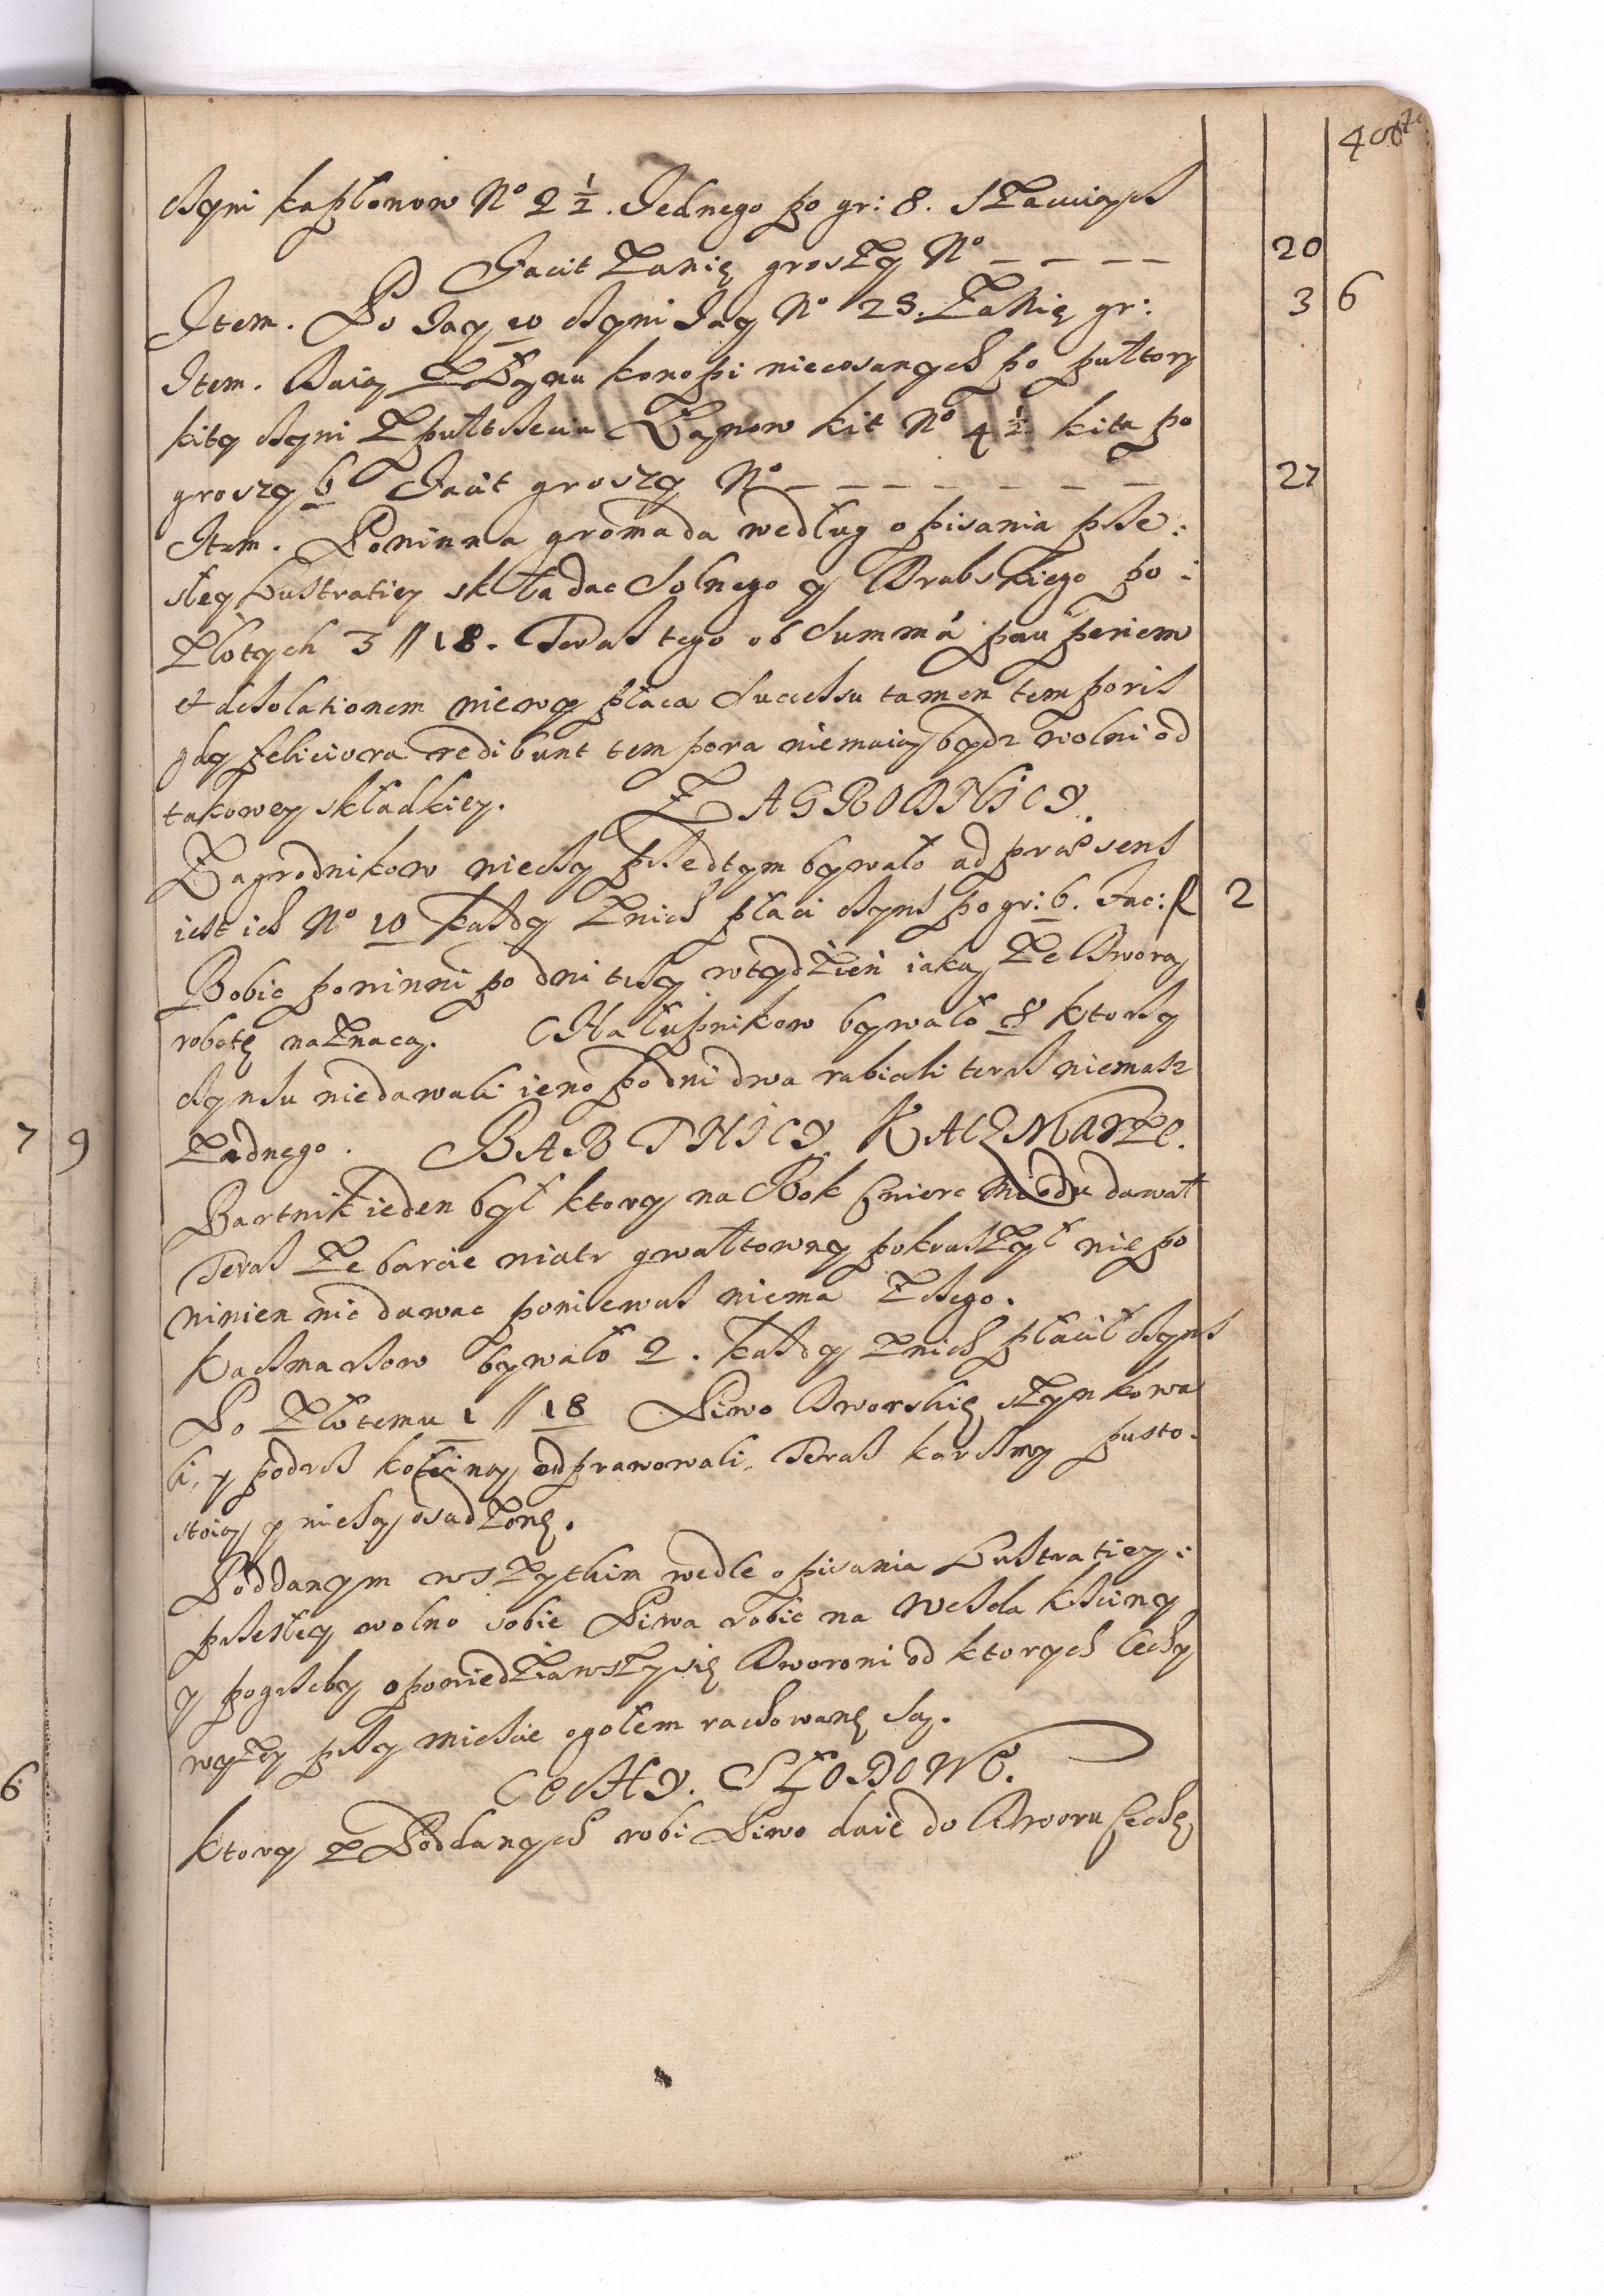 czyni kapłonow No 2 1/2. Jednego po gr: 8. Szacuiąch
Facit zanię groszy No – – – – 20
Item. Po Jay 10 czyni Jay No 25. zaNię gr: 3 | 6
Item. Daią z Łanu konopi nieczosanych po pułtory
kity czyni z pułtrzecia Łanow kit No 4 1/2 kita po
groszy 6 Facit groszy No – – – – – – – 27
Item. Powinna gromada według opisania prze:
słey Lustratiey składac Solnego y Drabskiego po:
Złotych 3 // 18. Teraz tego ob Summã pauperiem
et desolationem niewypłaca Successu tamen temporis
gdy feliciora redibunt tempora niemaią bydz wolni od
takowey składkiey. ZAGRODNICY.
Zagrodnikow nieczy przedtym bywało ad præsens
iest ich No 10 każdy znich płaci czynsz po gr: 6. Fac: fl 2
Robic powinni po dni trzy wtydzień iaką ze Dwora
robotę naznaczą. CHałupnikow bywało 8 ktorzy
czynszu niedawali ieno po dni dwa rabiali teraz niemasz
zadnego. BARTNICY KACZMARZE.
Bartnik ieden był ktory na Rok cwierc Miodu dawał
Teraz ze barcie wiatr gwałtowny pokruszył nie po
winien nic dawac poniewasz niema z czego.
Kaczmarzow bywało 2. każdy znich płacił czynsz
Po Złotemu 1 // 18 Piwo Dworskie szynkowa
li, y podrusz odprawowali. Teraz karczmy pusto.
stoią y nie są osadzone.
Poddanym wszytkim wedle opisania Lustratiey:
przeszłey wolno sobie Piwa robic na Wesela krzciny
y pogrzeby opowiedziawszy się Dworowi od ktorych Cechy
wyzey przy miescie ogołem rachowane są.
CECHY. SŁODOWE.
Ktory z Poddanych robi Piwo daie do Dworu Cechę
7 | 9
6